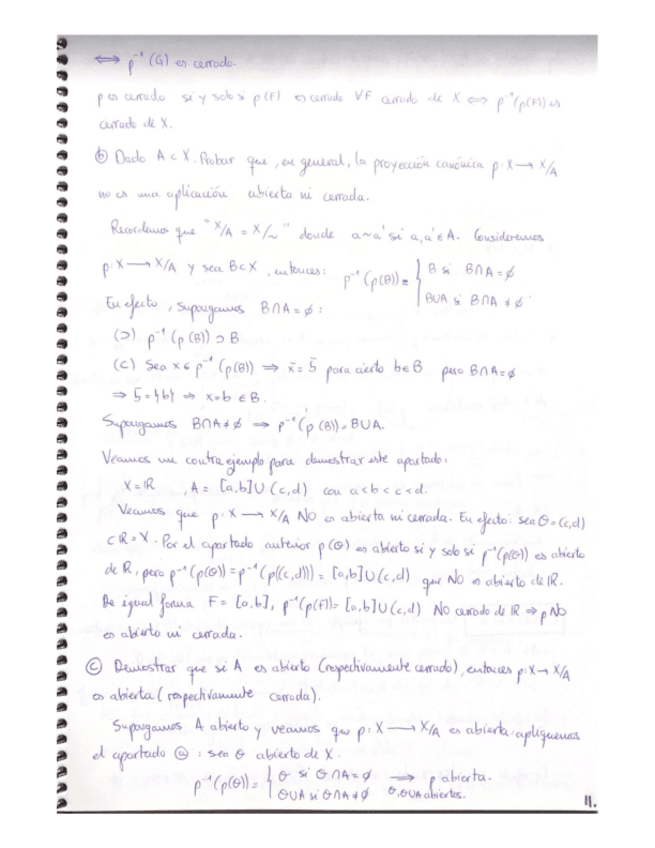 ⟺ p⁻¹(G) es cerrado.
p es cerrado si y solo si p(F) es cerrado ∀F cerrado de X ⟺ p⁻¹(p(F)) es
cerrado de X.
ⓑ Dado A ⊂ X. Probar que, en general, la proyección canónica p: X → X/A
no es una aplicación abierta ni cerrada.
Recordemos que "X/A = X/~" donde a~a' si a,a' ∈ A. Consideremos
p: X → X/A y sea B⊂X, entonces: p⁻¹(p(B)) = { B si B∩A = ∅
B∪A si B∩A ≠ ∅.
En efecto, supongamos B∩A = ∅:
(⊃) p⁻¹(p(B)) ⊃ B
(⊂) Sea x ∈ p⁻¹(p(B)) ⟹ x̄ = b̄ para cierto b∈B pero B∩A = ∅
⟹ b̄ = {b} ⟹ x = b ∈ B.
Supongamos B∩A ≠ ∅ ⟹ p⁻¹(p(B)) = B∪A.
Veamos un contraejemplo para demostrar este apartado:
X = ℝ, A = [a,b]∪(c,d) con a<b<c<d.
Veamos que p: X → X/A NO es abierta ni cerrada. En efecto: sea θ = (c,d)
⊂ ℝ = X. Por el apartado anterior p(θ) es abierto si y solo si p⁻¹(p(θ)) es abierto
de ℝ, pero p⁻¹(p(θ)) = p⁻¹(p((c,d))) = [a,b]∪(c,d) que NO es abierto de ℝ.
De igual forma F = [a,b], p⁻¹(p(F)) = [a,b]∪(c,d) NO cerrado de ℝ ⟹ p NO
es abierto ni cerrada.
ⓒ Demostrar que si A es abierto (respectivamente cerrado), entonces p: X → X/A
es abierta (respectivamente cerrada).
Supongamos A abierto y veamos que p: X → X/A es abierta: apliquemos
el apartado ⓐ: sea θ abierto de X.
p⁻¹(p(θ)) = { θ si θ∩A = ∅ ⟹ p abierta.
θ∪A si θ∩A ≠ ∅ θ, θ∪A abiertos.
11.